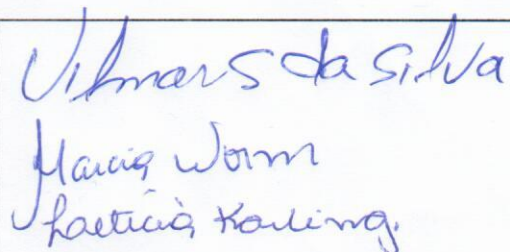 Vilmar S da Silva
Marcia Worm
Laeticia Karling.